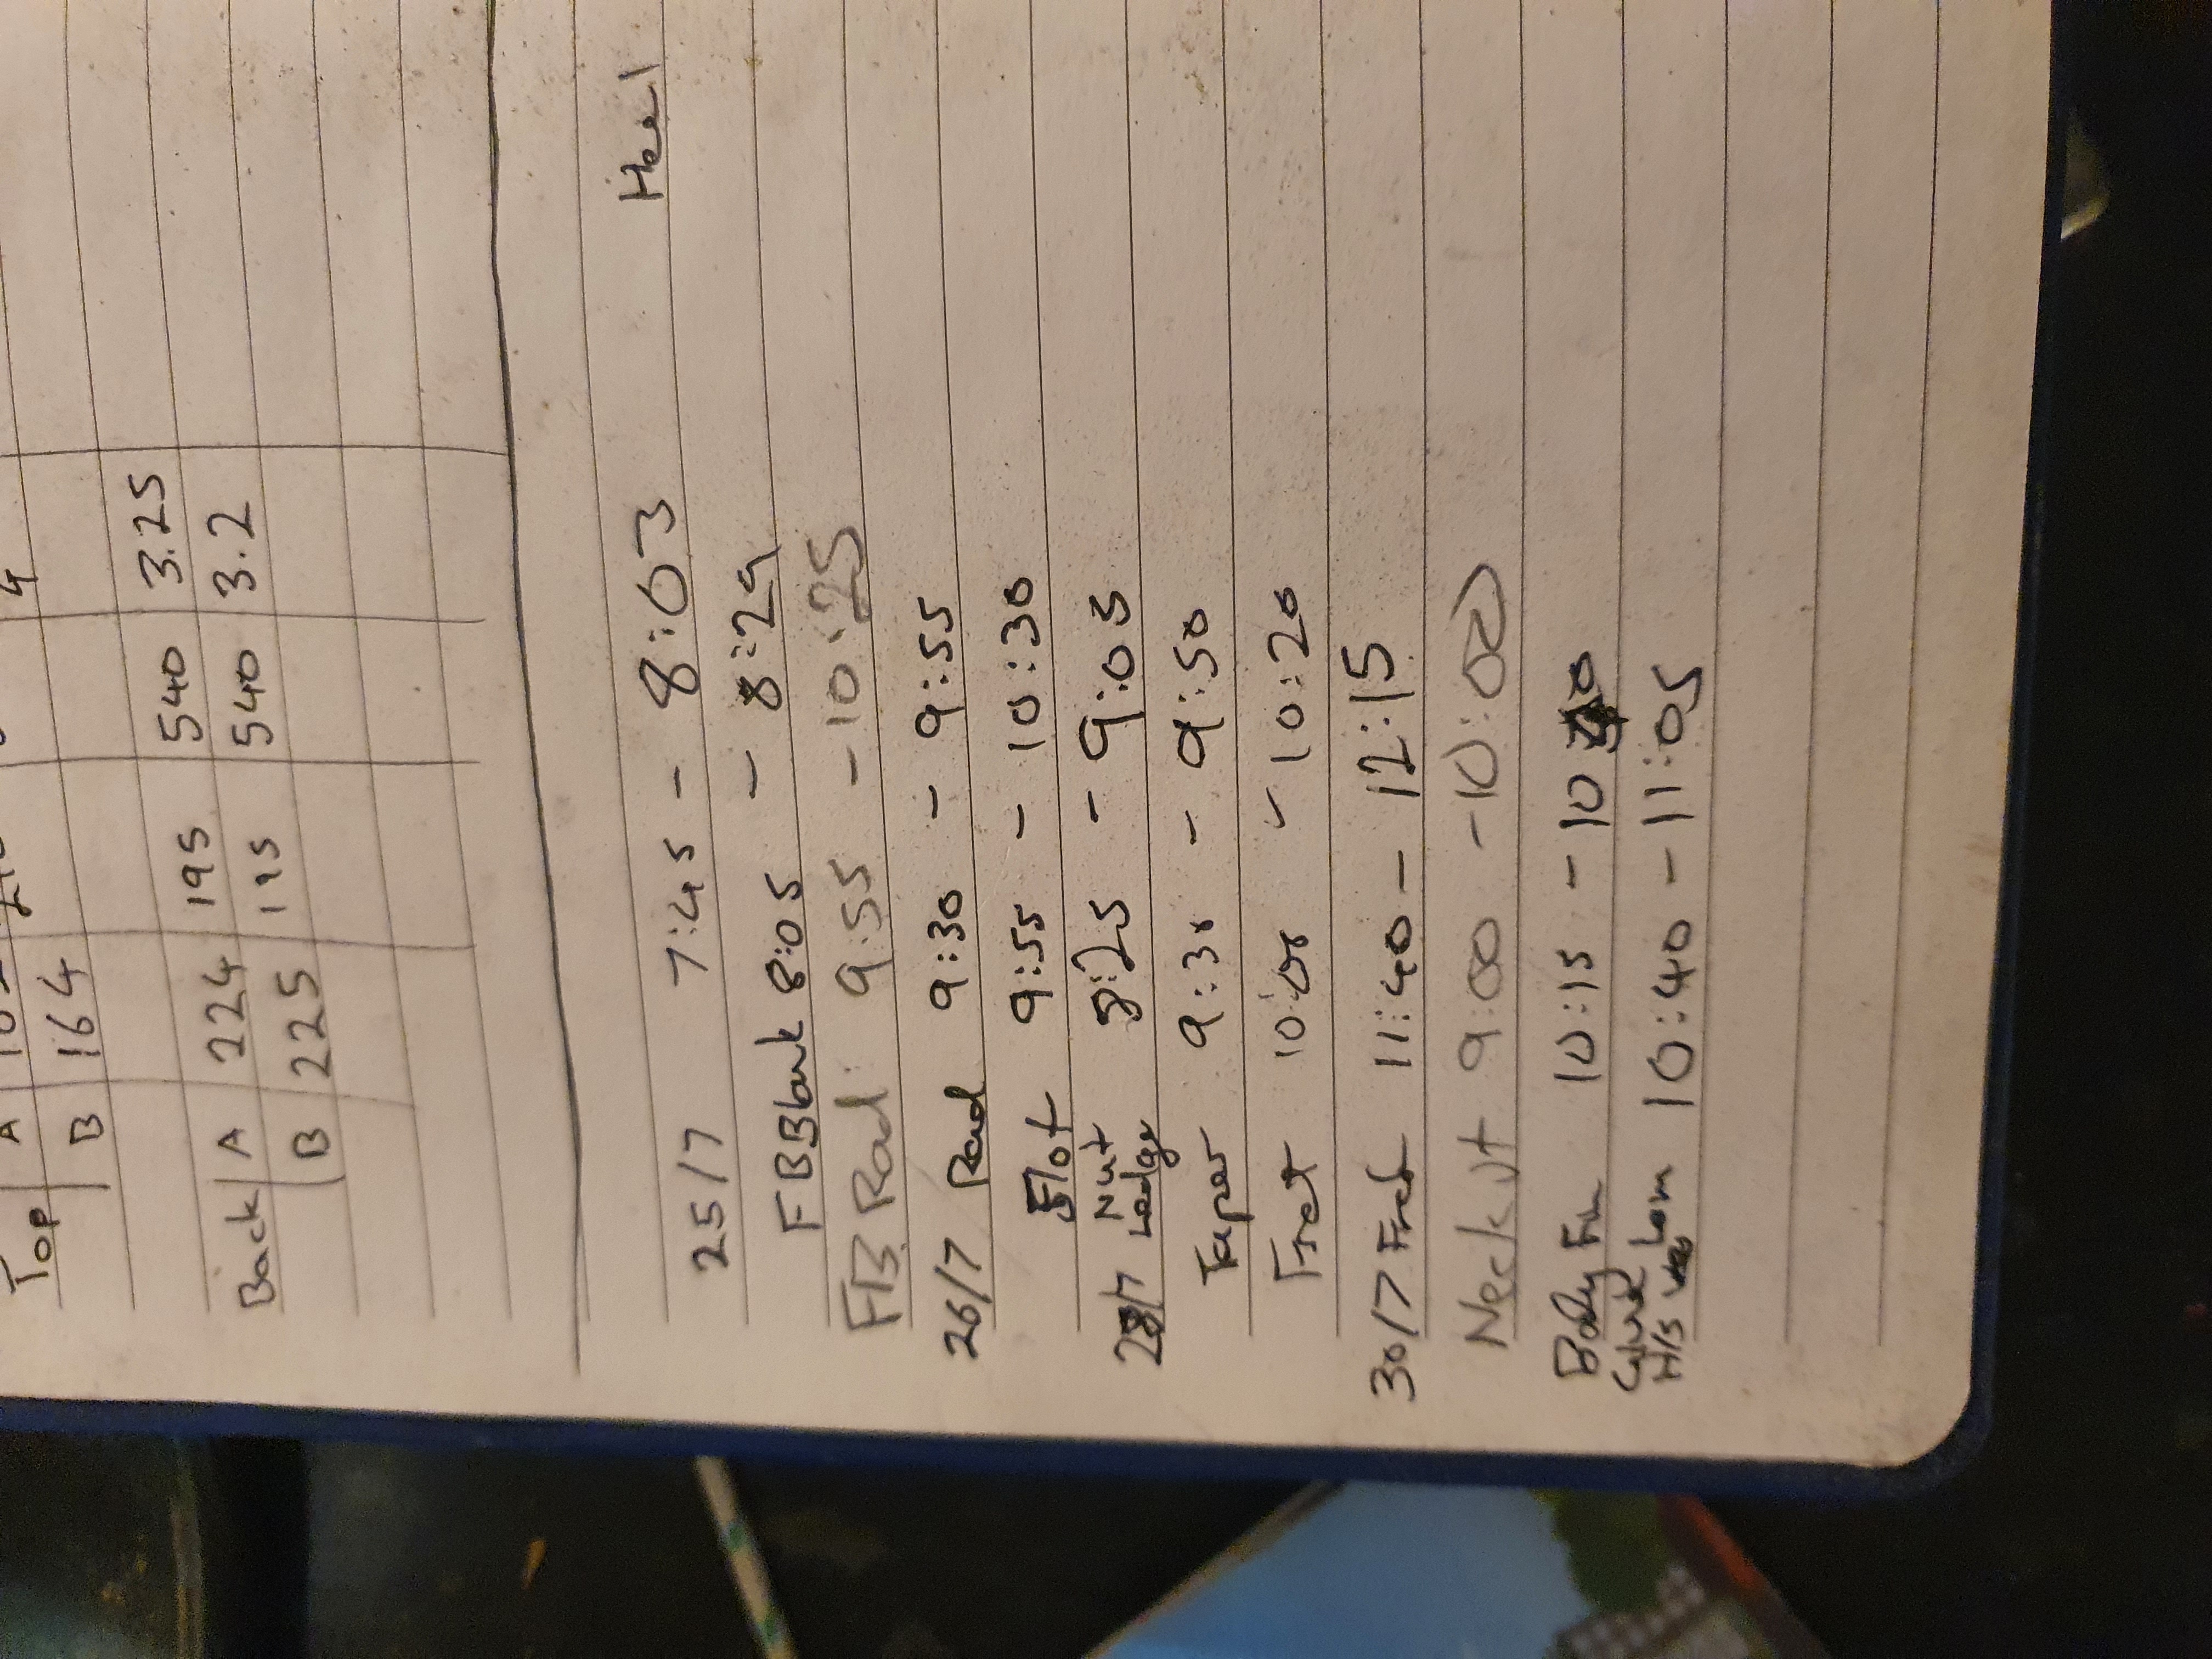 4
Top A
B 164
3.25
Back A 224 195 540 3.2
B 225 115 540
25/7 7:45 - 8:03 Heel
FBBlank 8:05 - 8:29
FB Rad: 9:55 - 10:25
26/7 Rad 9:30 - 9:55
Slot 9:55 - 10:30
28/7 Nut Ledge 8:25 - 9:05
Taper 9:30 - 9:50
Fret 10:00 - 10:20
30/7 Fret 11:40 - 12:15
Neck Jt 9:00 - 10:00
Body Fin 10:15 - 10
H/S Lam 10:40 - 11:05